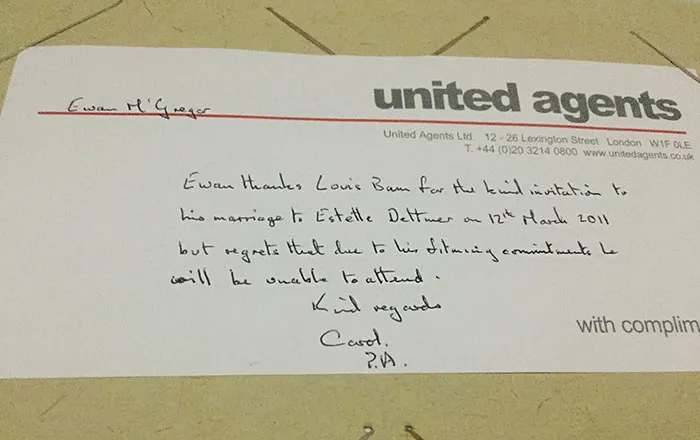 united agents
Ewan M'Gregor
United Agents Ltd. 12 - 26 Lexington Street London W1F 0LE
T. +44 (0)20 3214 0800 www.unitedagents.co.uk
Ewan thanks Louis Bam for the kind invitation to
his marriage to Estelle Dettmer on 12th March 2011
but regrets that due to his filming commitments he
will be unable to attend.
Kind regards
with complim
Carol.
P.A.